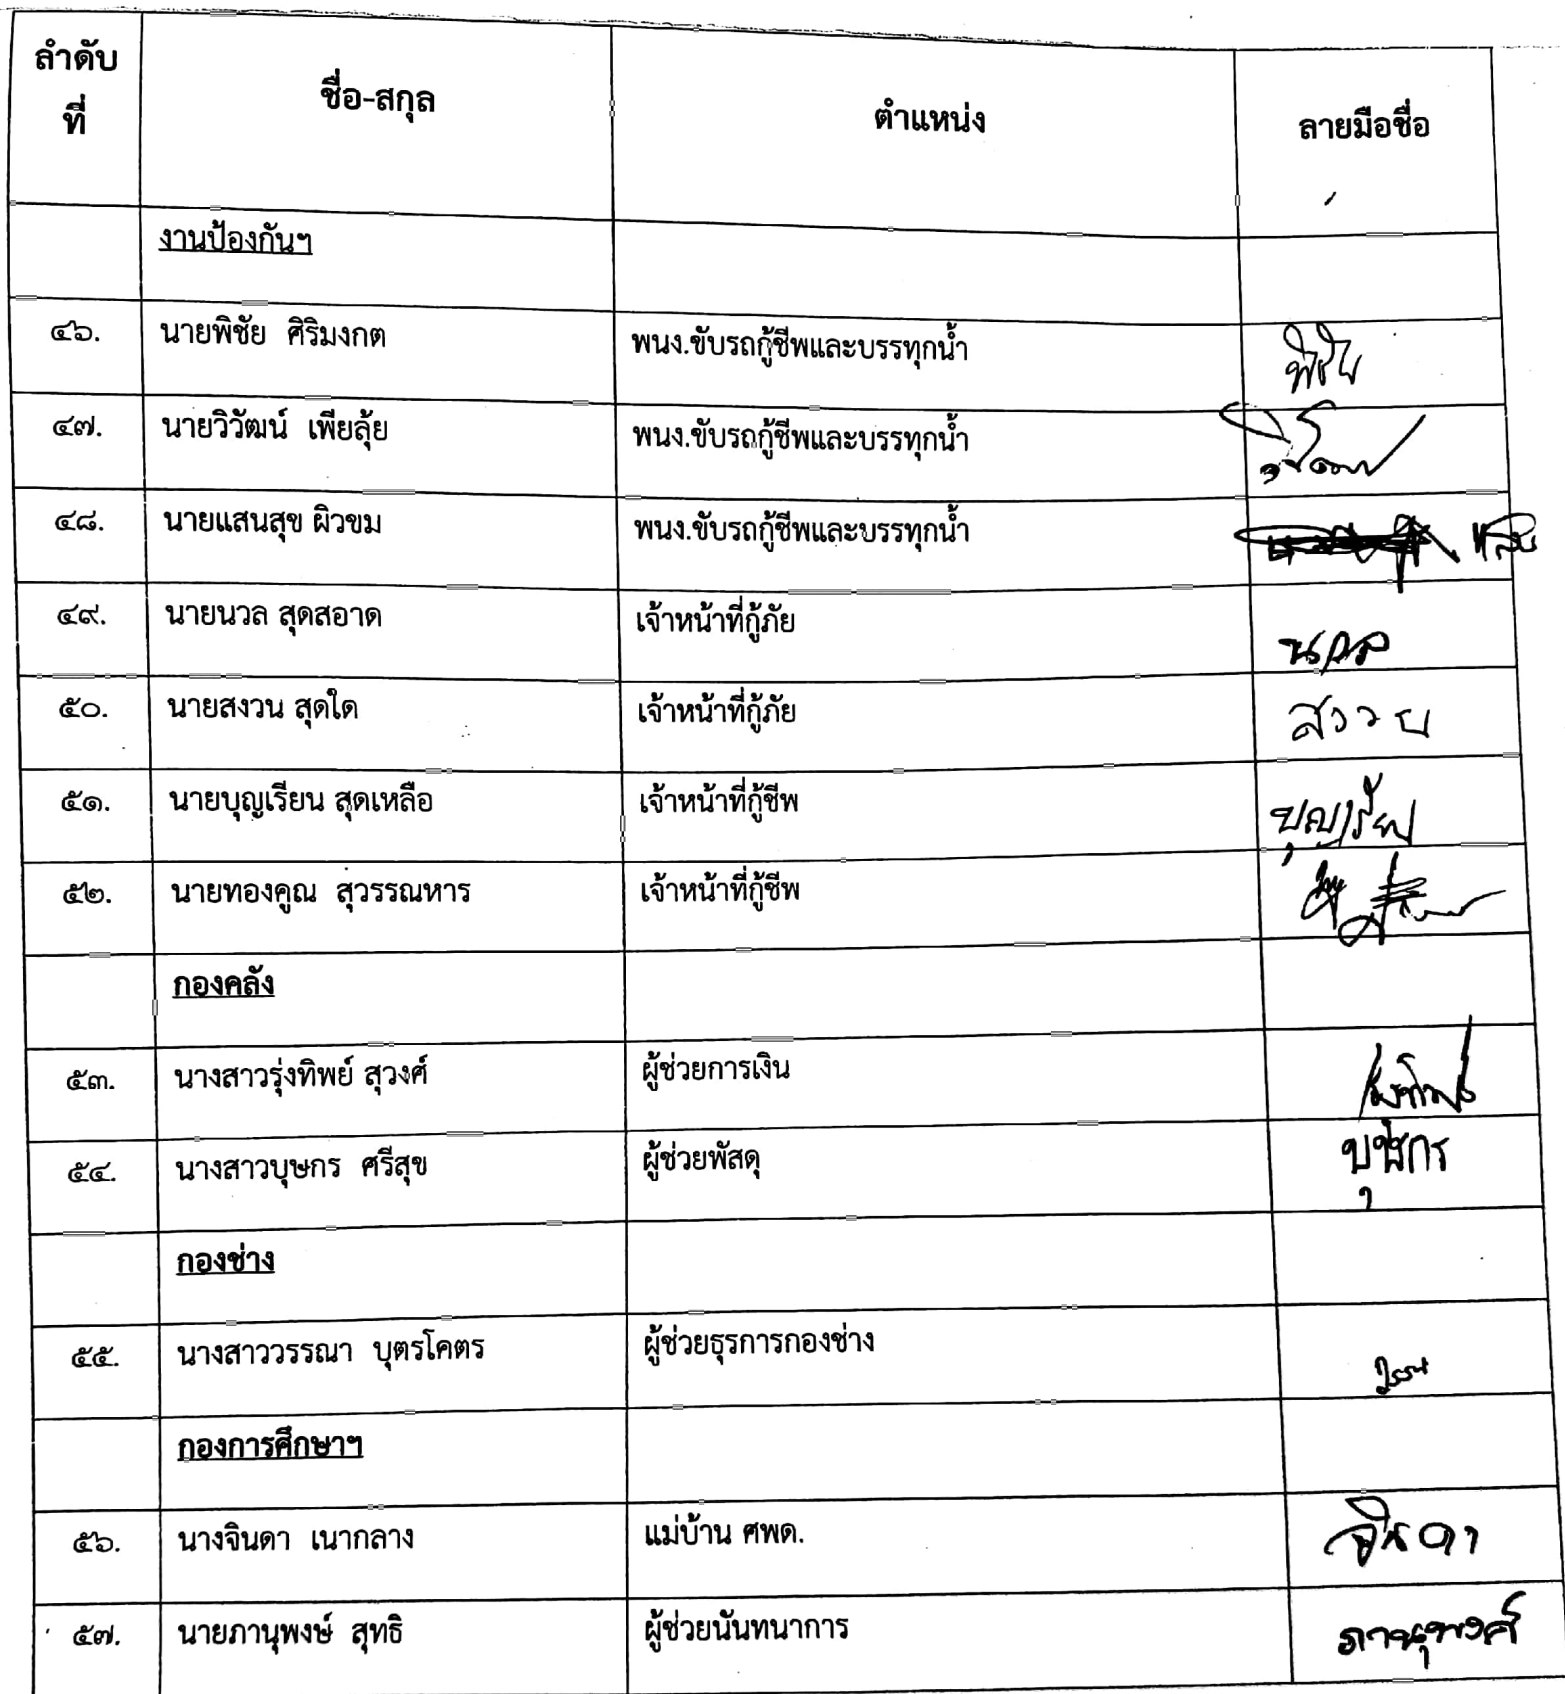 ลำดับ
ที่
ชื่อ-สกุล
ตำแหน่ง
ลายมือชื่อ
งานป้องกันฯ
๔๖. นายพิชัย ศิริมงกต พนง.ขับรถกู้ชีพและบรรทุกน้ำ พิชัย
๔๗. นายวิวัฒน์ เพียลุ้ย พนง.ขับรถกู้ชีพและบรรทุกน้ำ
๔๘. นายแสนสุข ผิวขม พนง.ขับรถกู้ชีพและบรรทุกน้ำ
๔๙. นายนวล สุดสอาด เจ้าหน้าที่กู้ภัย นวล
๕๐. นายสงวน สุดใด เจ้าหน้าที่กู้ภัย สงวน
๕๑. นายบุญเรียน สุดเหลือ เจ้าหน้าที่กู้ชีพ บุญเรียน
๕๒. นายทองคูณ สุวรรณหาร เจ้าหน้าที่กู้ชีพ
กองคลัง
๕๓. นางสาวรุ่งทิพย์ สุวงศ์ ผู้ช่วยการเงิน รุ่งทิพย์
๕๔. นางสาวบุษกร ศรีสุข ผู้ช่วยพัสดุ บุษกร
กองช่าง
๕๕. นางสาววรรณา บุตรโคตร ผู้ช่วยธุรการกองช่าง
กองการศึกษาฯ
๕๖. นางจินดา เนากลาง แม่บ้าน ศพด. จินดา
๕๗. นายภานุพงษ์ สุทธิ ผู้ช่วยนันทนาการ ภานุพงศ์